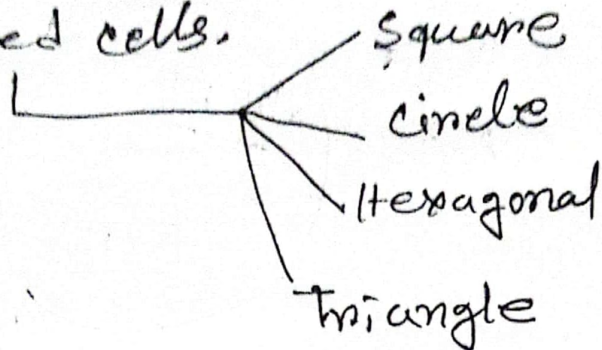 ed cells.
Square
Circle
Hexagonal
Triangle